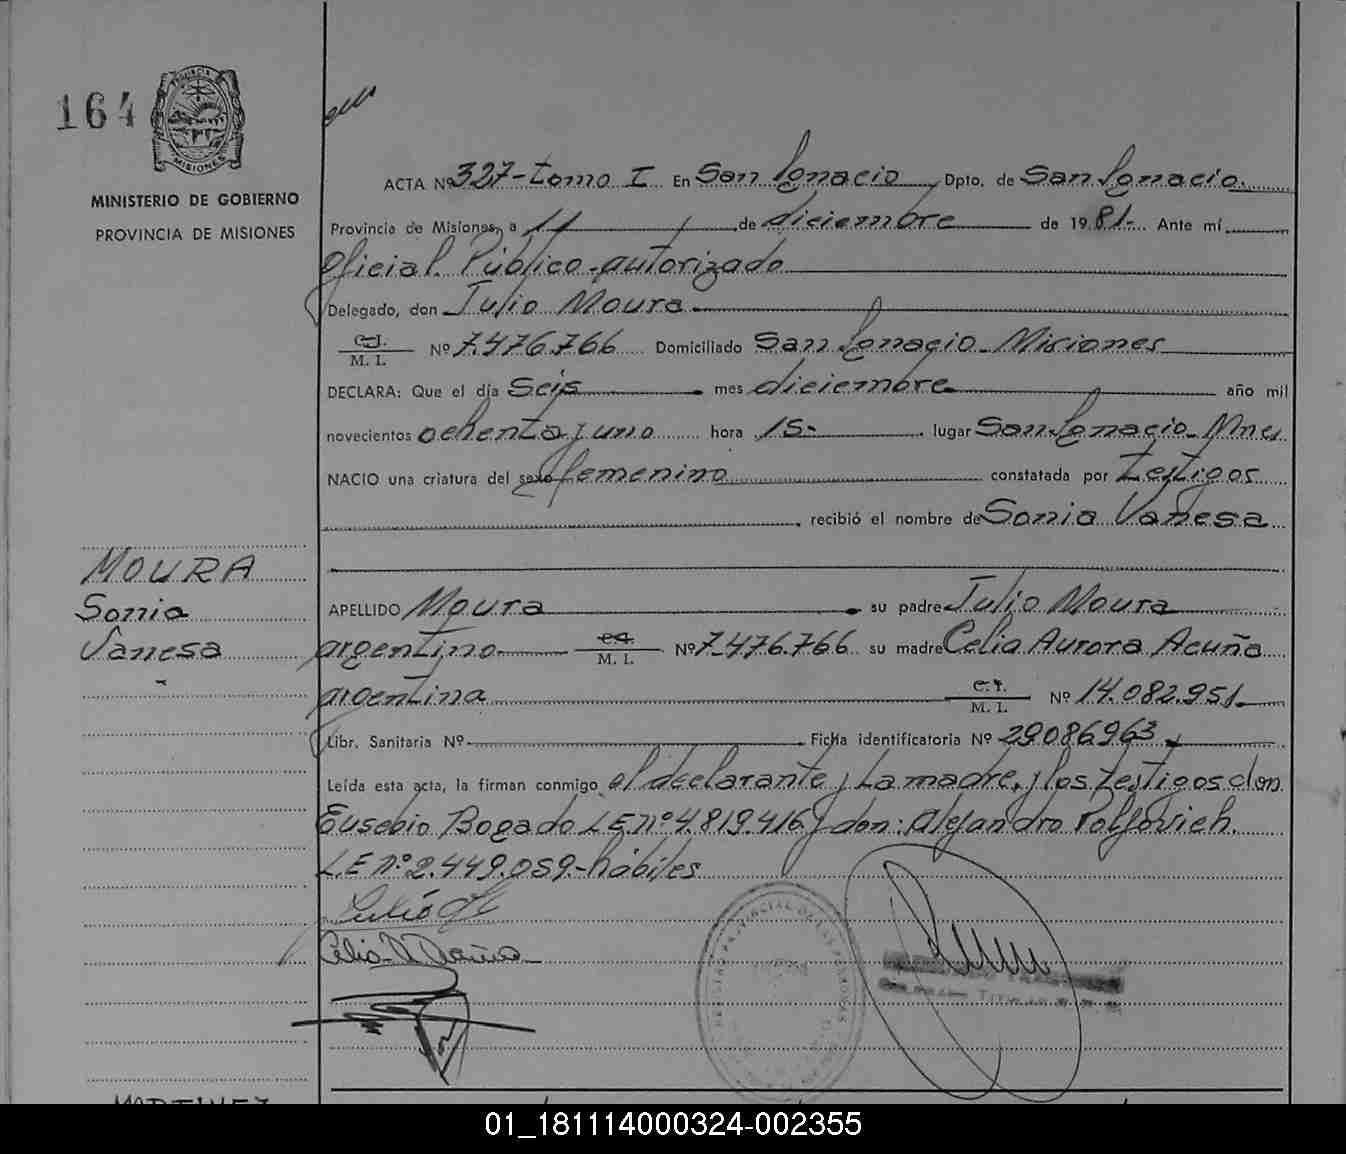 164
PROVINCIA DE
MISIONES
MINISTERIO DE GOBIERNO
PROVINCIA DE MISIONES
ACTA Nº 327-tomo I En San Ignacio Dpto. de San Ignacio.
Provincia de Misiones, a 11 de diciembre de 1981.- Ante mí
Oficial Público autorizado
Delegado, don Julio Moura
C.I. M. I. Nº 7.476.766 Domiciliado San Ignacio - Misiones
DECLARA: Que el día Seis mes diciembre año mil
novecientos ochenta y uno hora 15- lugar San Ignacio - Mnes
NACIO una criatura del sexo femenino constatada por testigos
, recibió el nombre de Sonia Vanesa
MOURA
Sonia
Vanesa
APELLIDO Moura su padre Julio Moura
argentino M. I. Nº 7.476.766 su madre Celia Aurora Acuña
argentina C.I. M. I. Nº 14.082.951
Libr. Sanitaria Nº Ficha identificatoria Nº 29086963
Leída esta acta, la firman conmigo el declarante y La madre, y los testigos don
Eusebio Bogado L.E. nº 4.819.416 y don: Alejandro
L.E nº 2.449.059 - hábiles
Julio
Celia A Acuña
MARTINEZ
01_181114000324-002355